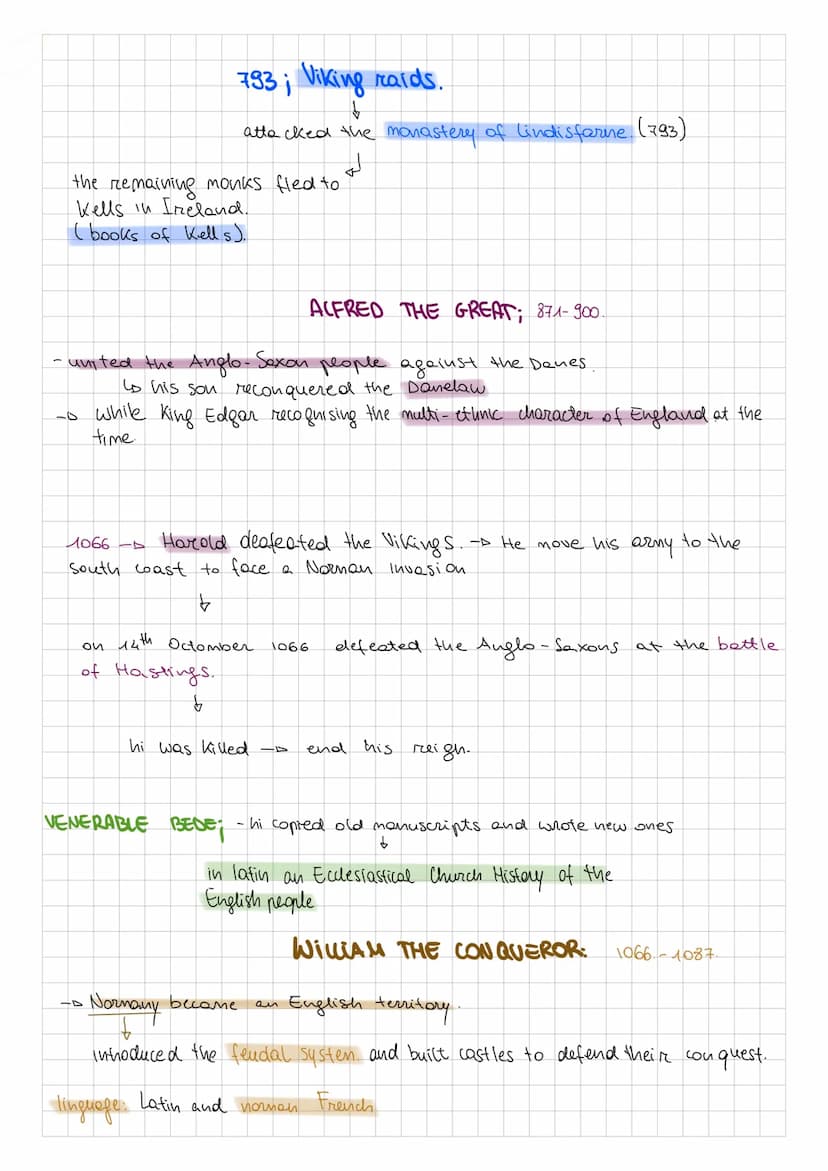 793; Viking raids.
attacked the monastery of lindisfarne. (793)
the remaining monks fled to
Kells in Ireland.
(books of Kells).
ALFRED THE GREAT; 871-900.
- united the Anglo-Saxon people against the Danes.
↳ his son reconquered the Danelaw
→ while King Edgar recognising the multi-ethnic character of England at the
time
1066 → Harold deafeated the Vikings. → He move his army to the
south coast to face a Norman Invasion
↓
on 14th Octomber 1066 defeated the Anglo-Saxons at the battle
of Hastings.
↓
hi was killed → end his reign.
VENERABLE BEDE; - hi copied old manuscripts and wrote new ones
↓
in latin an Ecclesiastical Church History of the
English people
WILLIAM THE CONQUEROR: 1066.-1087.
→ Normany became an English territory.
↓
introduced the feudal system and built castles to defend their conquest.
linguage: Latin and norman French